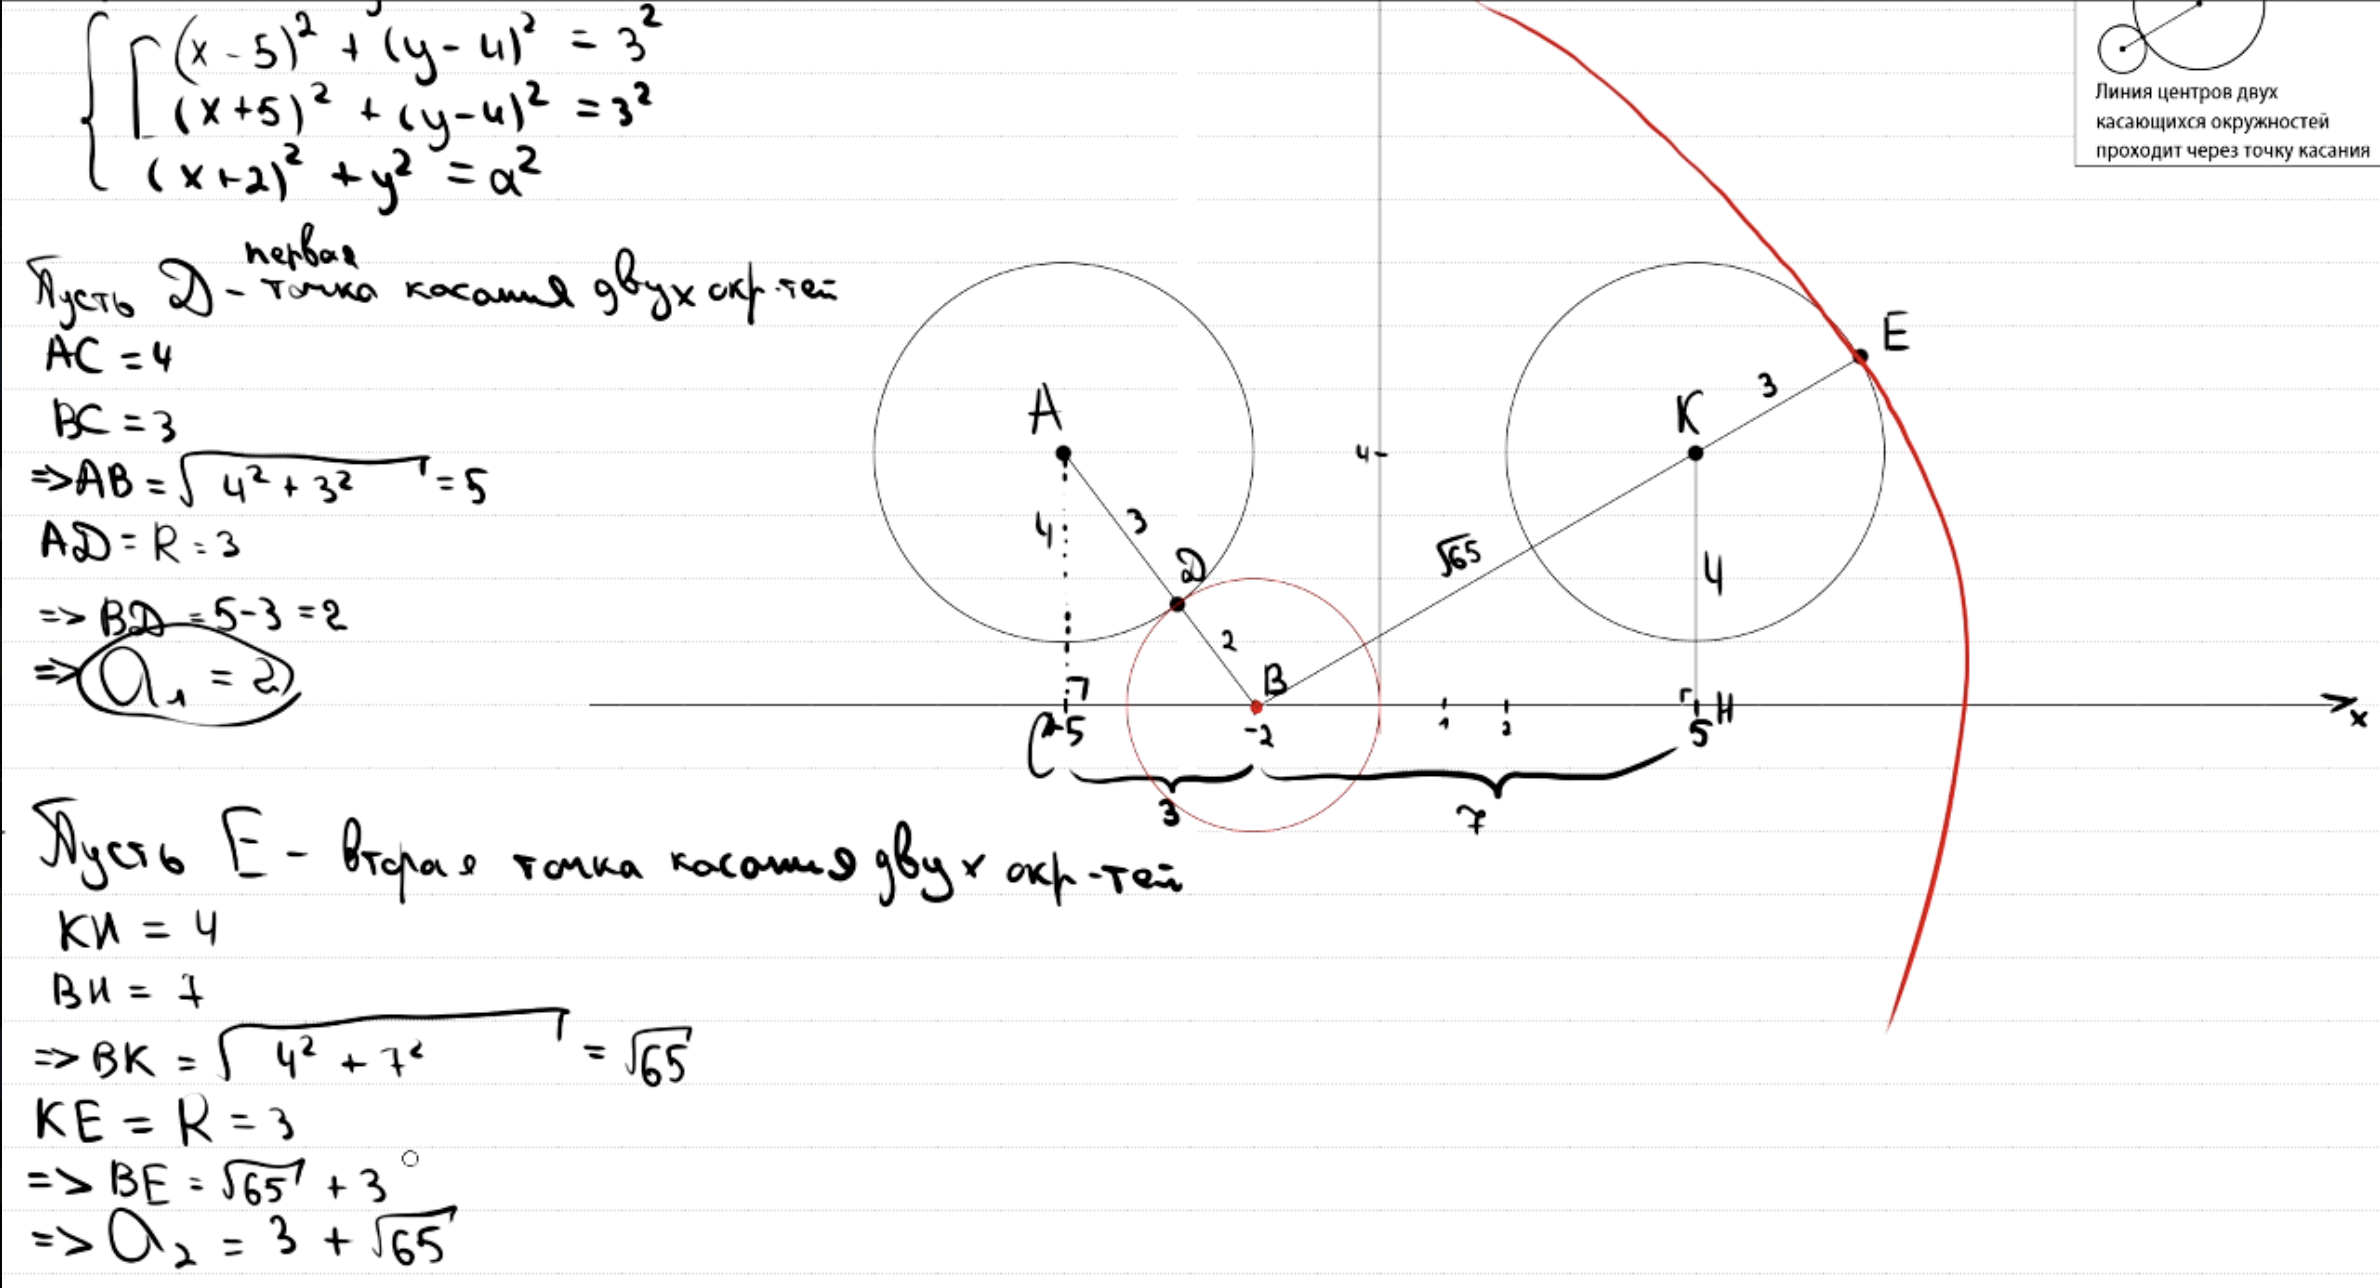 (x-5)² + (y-4)² = 3²
(x+5)² + (y-4)² = 3²
(x+2)² + y² = a²
Пусть D - первая точка касания двух окр-тей
AC = 4
BC = 3
=> AB = √(4² + 3²) = 5
AD = R = 3
=> BD = 5-3 = 2
=> a₁ = 2
Пусть E - вторая точка касания двух окр-тей
KH = 4
BH = 7
=> BK = √(4² + 7²) = √65
KE = R = 3
=> BE = √65 + 3
=> a₂ = 3 + √65
Линия центров двух
касающихся окружностей
проходит через точку касания
E
3
K
A
4
3
4
D
√65
4
2
B
C
-5
-2
1
2
5
H
x
3
7